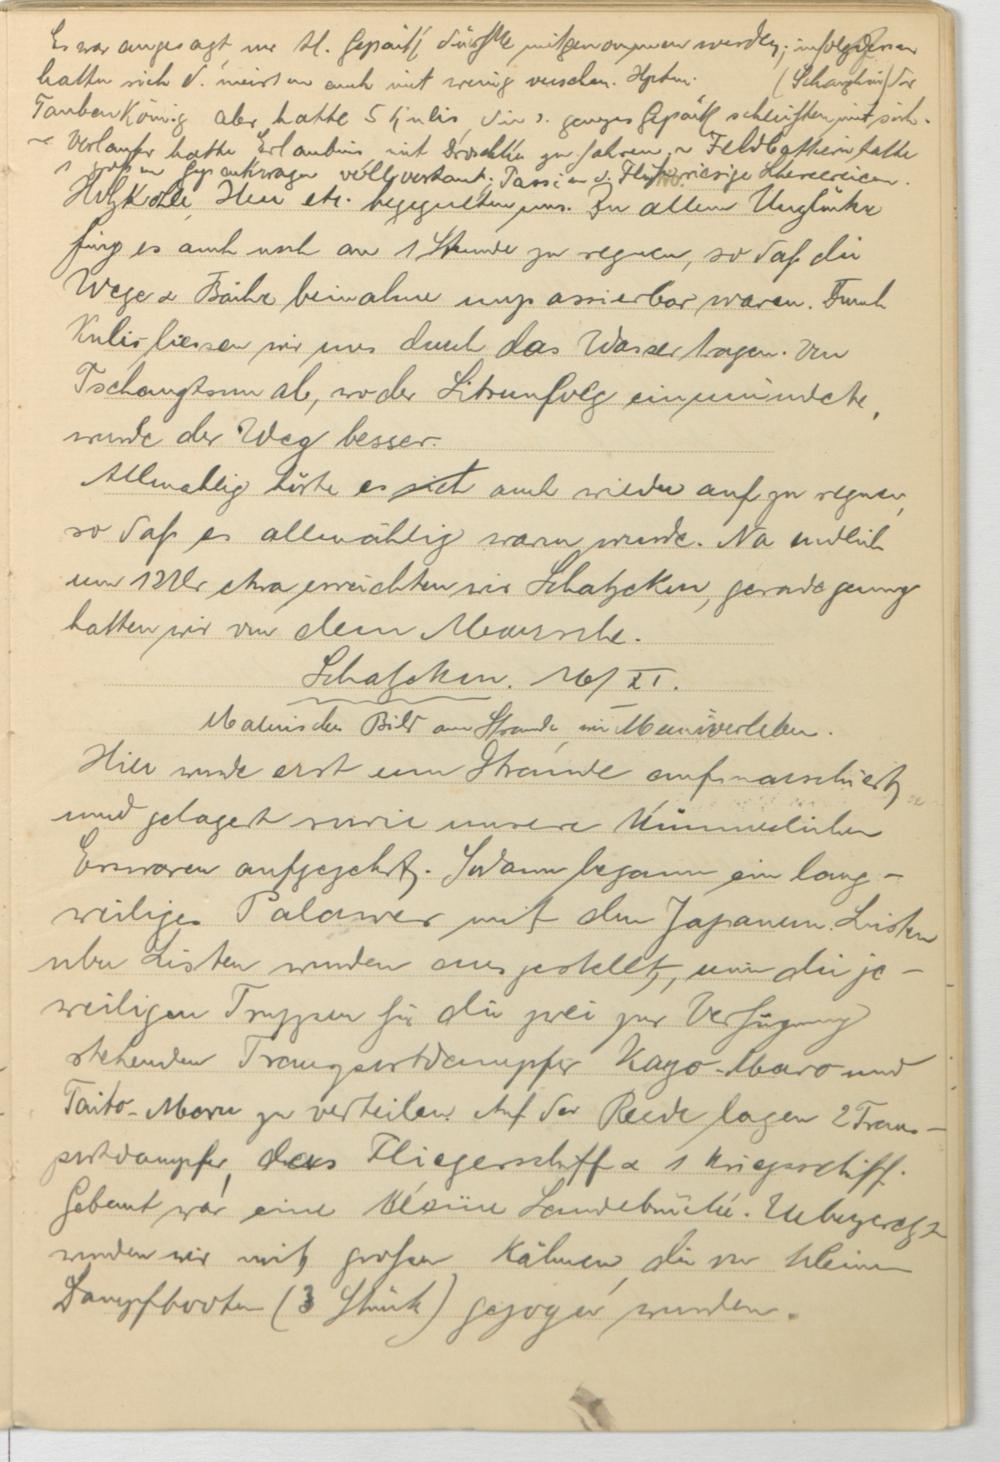 Es war angesagt nur kl. Gepäck dürfte mitgenommen werden; infolgedessen
hatten sich d. meisten auch mit wenig versehen. Hptm. (Scharzhin) der
Taubenkönig aber hatte 5 Kulis, die s. ganzes Gepäck schleiften mit sich.
Verlaufer hatte Erlaubnis mit Droschke zu fahren, u Feldbäckerei hatte
1 großen Gepäckwagen voll verstaut; Passieren d. Flüsse riesige
Holzkohle, Heu etc. begegneten uns. Zu allem Unglücke
fing es auch noch an 1 Stunde zu regnen, so daß die
Wege & Bäche beinahe unpassierbar waren. Durch
Kulis liessen wir uns durch das Wasser tragen. Von
Tschangtsun ab, wo der Litsunfolg einmündete,
wurde der Weg besser.
Allmählig hörte es auch wieder auf zu regnen,
so daß es allmählig warm wurde. Na endlich
um 12 Uhr etwa erreichten wir Schatzekou, gerade genug
hatten wir von dem Marsche.
Schatzekou. 16/XI.
Malerisches Bild am Strande, ein Manöverleben.
Hier wurde erst am Strande aufmarschiert,
und gelagert sowie unsere kümmerlichen
Esswaren aufgezehrt. Sodann begann ein lang-
weiliges Palawer mit den Japanern. Listen
über Listen wurden ausgestellt, um die je-
weiligen Truppen für die zwei zur Verfügung
stehenden Transportdampfer Kayo-Maro und
Taito-Maru zu verteilen. Auf der Reede lagen 2 Trans-
portdampfer, das Fliegerschiff & 1 Kriegsschiff.
Gebaut war eine kleine Landebrücke. Uebergesetzt
wurden wir mit großen Kähnen, die von kleinen
Dampfbooten (3 Stück) gezogen wurden.